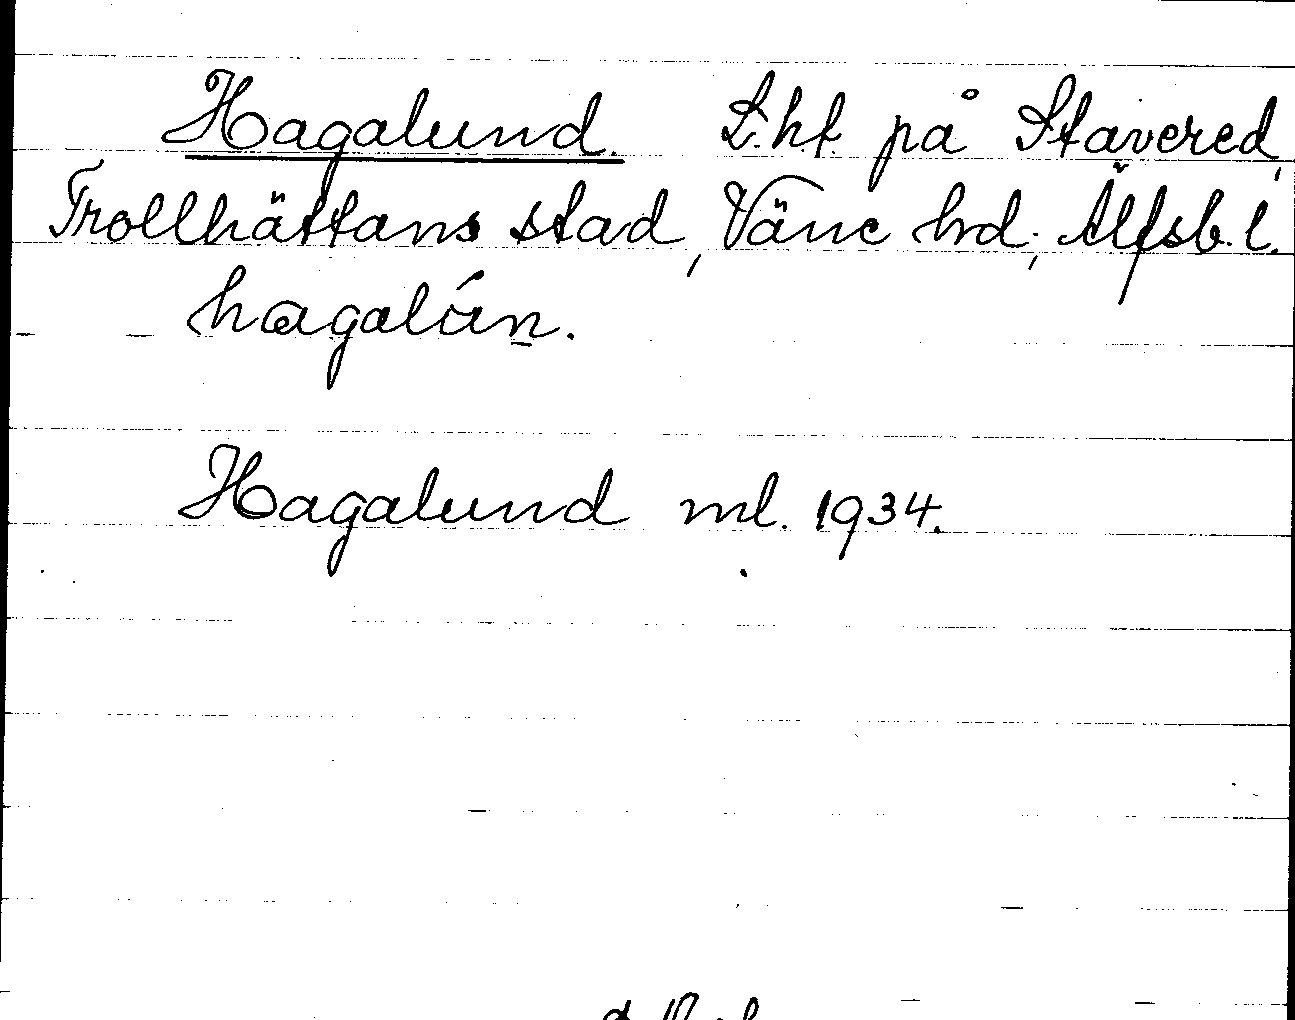 Hagalund. L.ht. på Stavered,
Trollhättans stad, Väne hd; Älfsb. l.
hagalún.
Hagalund ml. 1934.